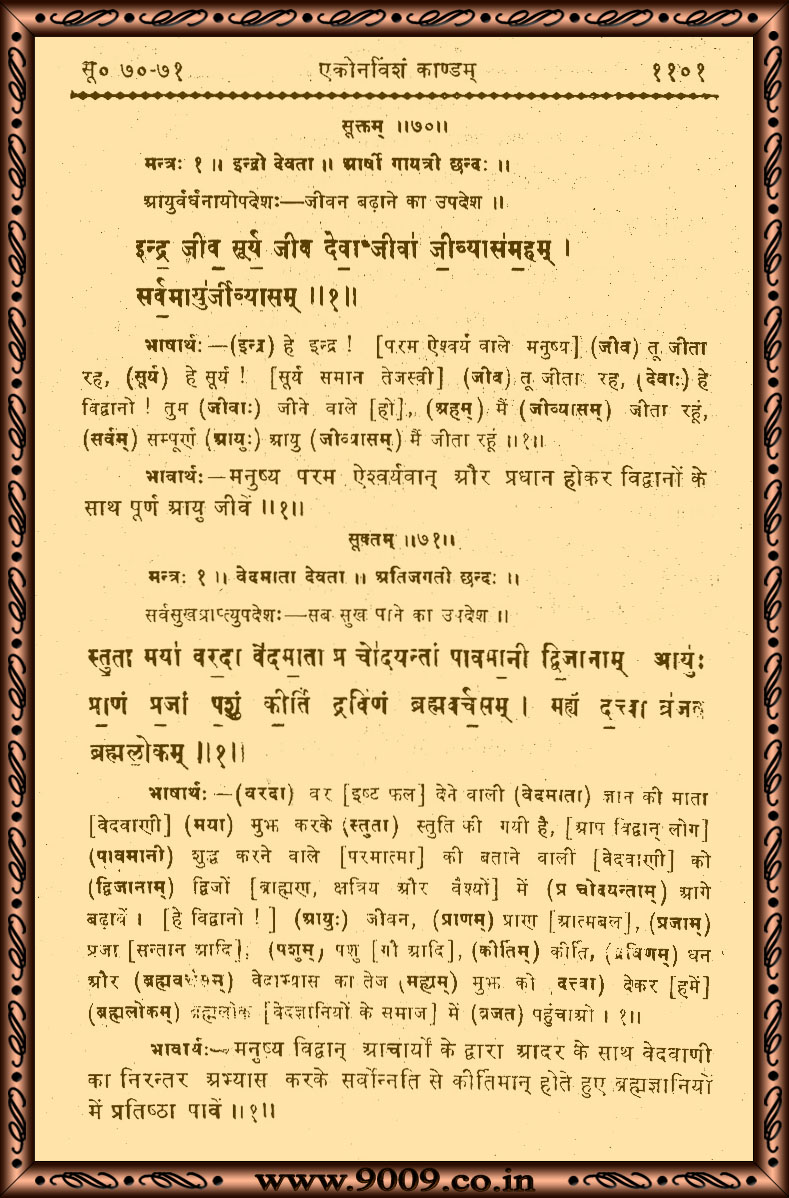 सू० ७०-७१ एकोनविंशं काण्डम् ११०१
सूक्तम् ॥७०॥
मन्त्रः १ ॥ इन्द्रो देवता ॥ आर्षी गायत्री छन्दः ॥
आयुर्वर्धनायोपदेशः—जीवन बढ़ाने का उपदेश ॥
इन्द्र॒ जीव॒ सूर्य॒ जीव॒ देवा॒ जीवा॑ जी॒व्यास॑म॒हम् ।
सर्व॒मायु॑र्जीव्यासम् ॥१॥
भाषार्थः—(इन्द्र) हे इन्द्र ! [परम ऐश्वर्य वाले मनुष्य] (जीव) तू जीता
रह, (सूर्य) हे सूर्य ! [सूर्य समान तेजस्वी] (जीव) तू जीता रह, (देवाः) हे
विद्वानो ! तुम (जीवाः) जीने वाले [हो], (अहम्) मैं (जीव्यासम्) जीता रहूं,
(सर्वम्) सम्पूर्ण (आयुः) आयु (जीव्यासम्) मैं जीता रहूं ॥१॥
भावार्थः—मनुष्य परम ऐश्वर्यवान् और प्रधान होकर विद्वानों के
साथ पूर्ण आयु जीवें ॥१॥
सूक्तम् ॥७१॥
मन्त्रः १ ॥ वेदमाता देवता ॥ अतिजगती छन्दः ॥
सर्वसुखप्राप्त्युपदेशः—सब सुख पाने का उपदेश ॥
स्तु॒ता मया॑ वर॒दा वे॑दमा॒ता प्र चो॑दयन्तां पावमा॒नी द्वि॒जाना॑म् आयुः॑
प्रा॒णं प्र॒जां प॒शुं की॒र्तिं द्रवि॑णं ब्रह्मवर्च॒सम् । मह्यं॑ द॒त्त्वा व्र॑जत
ब्रह्मलो॒कम् ॥१॥
भाषार्थः—(वरदा) वर [इष्ट फल] देने वाली (वेदमाता) ज्ञान की माता
[वेदवाणी] (मया) मुझ करके (स्तुता) स्तुति की गयी है, [आप विद्वान् लोग]
(पावमानी) शुद्ध करने वाले [परमात्मा] की बताने वाली [वेदवाणी] को
(द्विजानाम्) द्विजों [ब्राह्मण, क्षत्रिय और वैश्यों] में (प्र चोदयन्ताम्) आगे
बढ़ावें । [हे विद्वानो ! ] (आयुः) जीवन, (प्राणम्) प्राण [आत्मबल], (प्रजाम्)
प्रजा [सन्तान आदि], (पशुम्) पशु [गौ आदि], (कीर्तिम्) कीर्ति, (द्रविणम्) धन
और (ब्रह्मवर्चसम्) वेदाभ्यास का तेज (मह्यम्) मुझ को (दत्त्वा) देकर [हमें]
(ब्रह्मलोकम्) ब्रह्मलोक [वेदज्ञानियों के समाज] में (व्रजत) पहुंचाओ । १॥
भावार्थः—मनुष्य विद्वान् आचार्यों के द्वारा आदर के साथ वेदवाणी
का निरन्तर अभ्यास करके सर्वोन्नति से कीर्तिमान् होते हुए ब्रह्मज्ञानियों
में प्रतिष्ठा पावें ॥१॥
www.9009.co.in